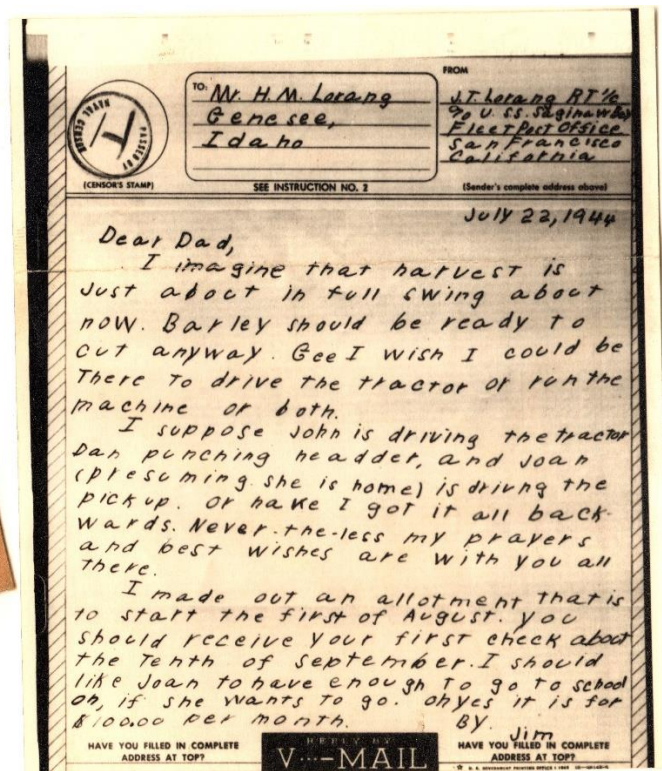 TO:
Mr. H.M. Lorang
Genesee,
Idaho
FROM
J.T. Lorang RT 1/c
% U.S.S. Saginaw Bay
Fleet Post Office
San Francisco
California
PASSED BY
NAVAL CENSOR
(CENSOR'S STAMP)
SEE INSTRUCTION NO. 2
(Sender's complete address above)
July 22, 1944
Dear Dad,
I imagine that harvest is
just about in full swing about
now. Barley should be ready to
cut anyway. Gee I wish I could be
There to drive the tractor or run the
machine or both.
I suppose John is driving the tractor
Dan punching headder, and Joan
(presuming she is home) is drivng the
pickup. Or have I got it all back-
wards. Never-the-less my prayers
and best wishes are with you all
there.
I made out an allotment that is
to start the first of August. You
should receive your first check about
the Tenth of September. I should
like Joan to have enough to go to school
on, if she wants to go. Oh yes it is for
$100.00 per month. By
Jim
HAVE YOU FILLED IN COMPLETE
ADDRESS AT TOP?
REPLY BY
V···—MAIL
HAVE YOU FILLED IN COMPLETE
ADDRESS AT TOP?